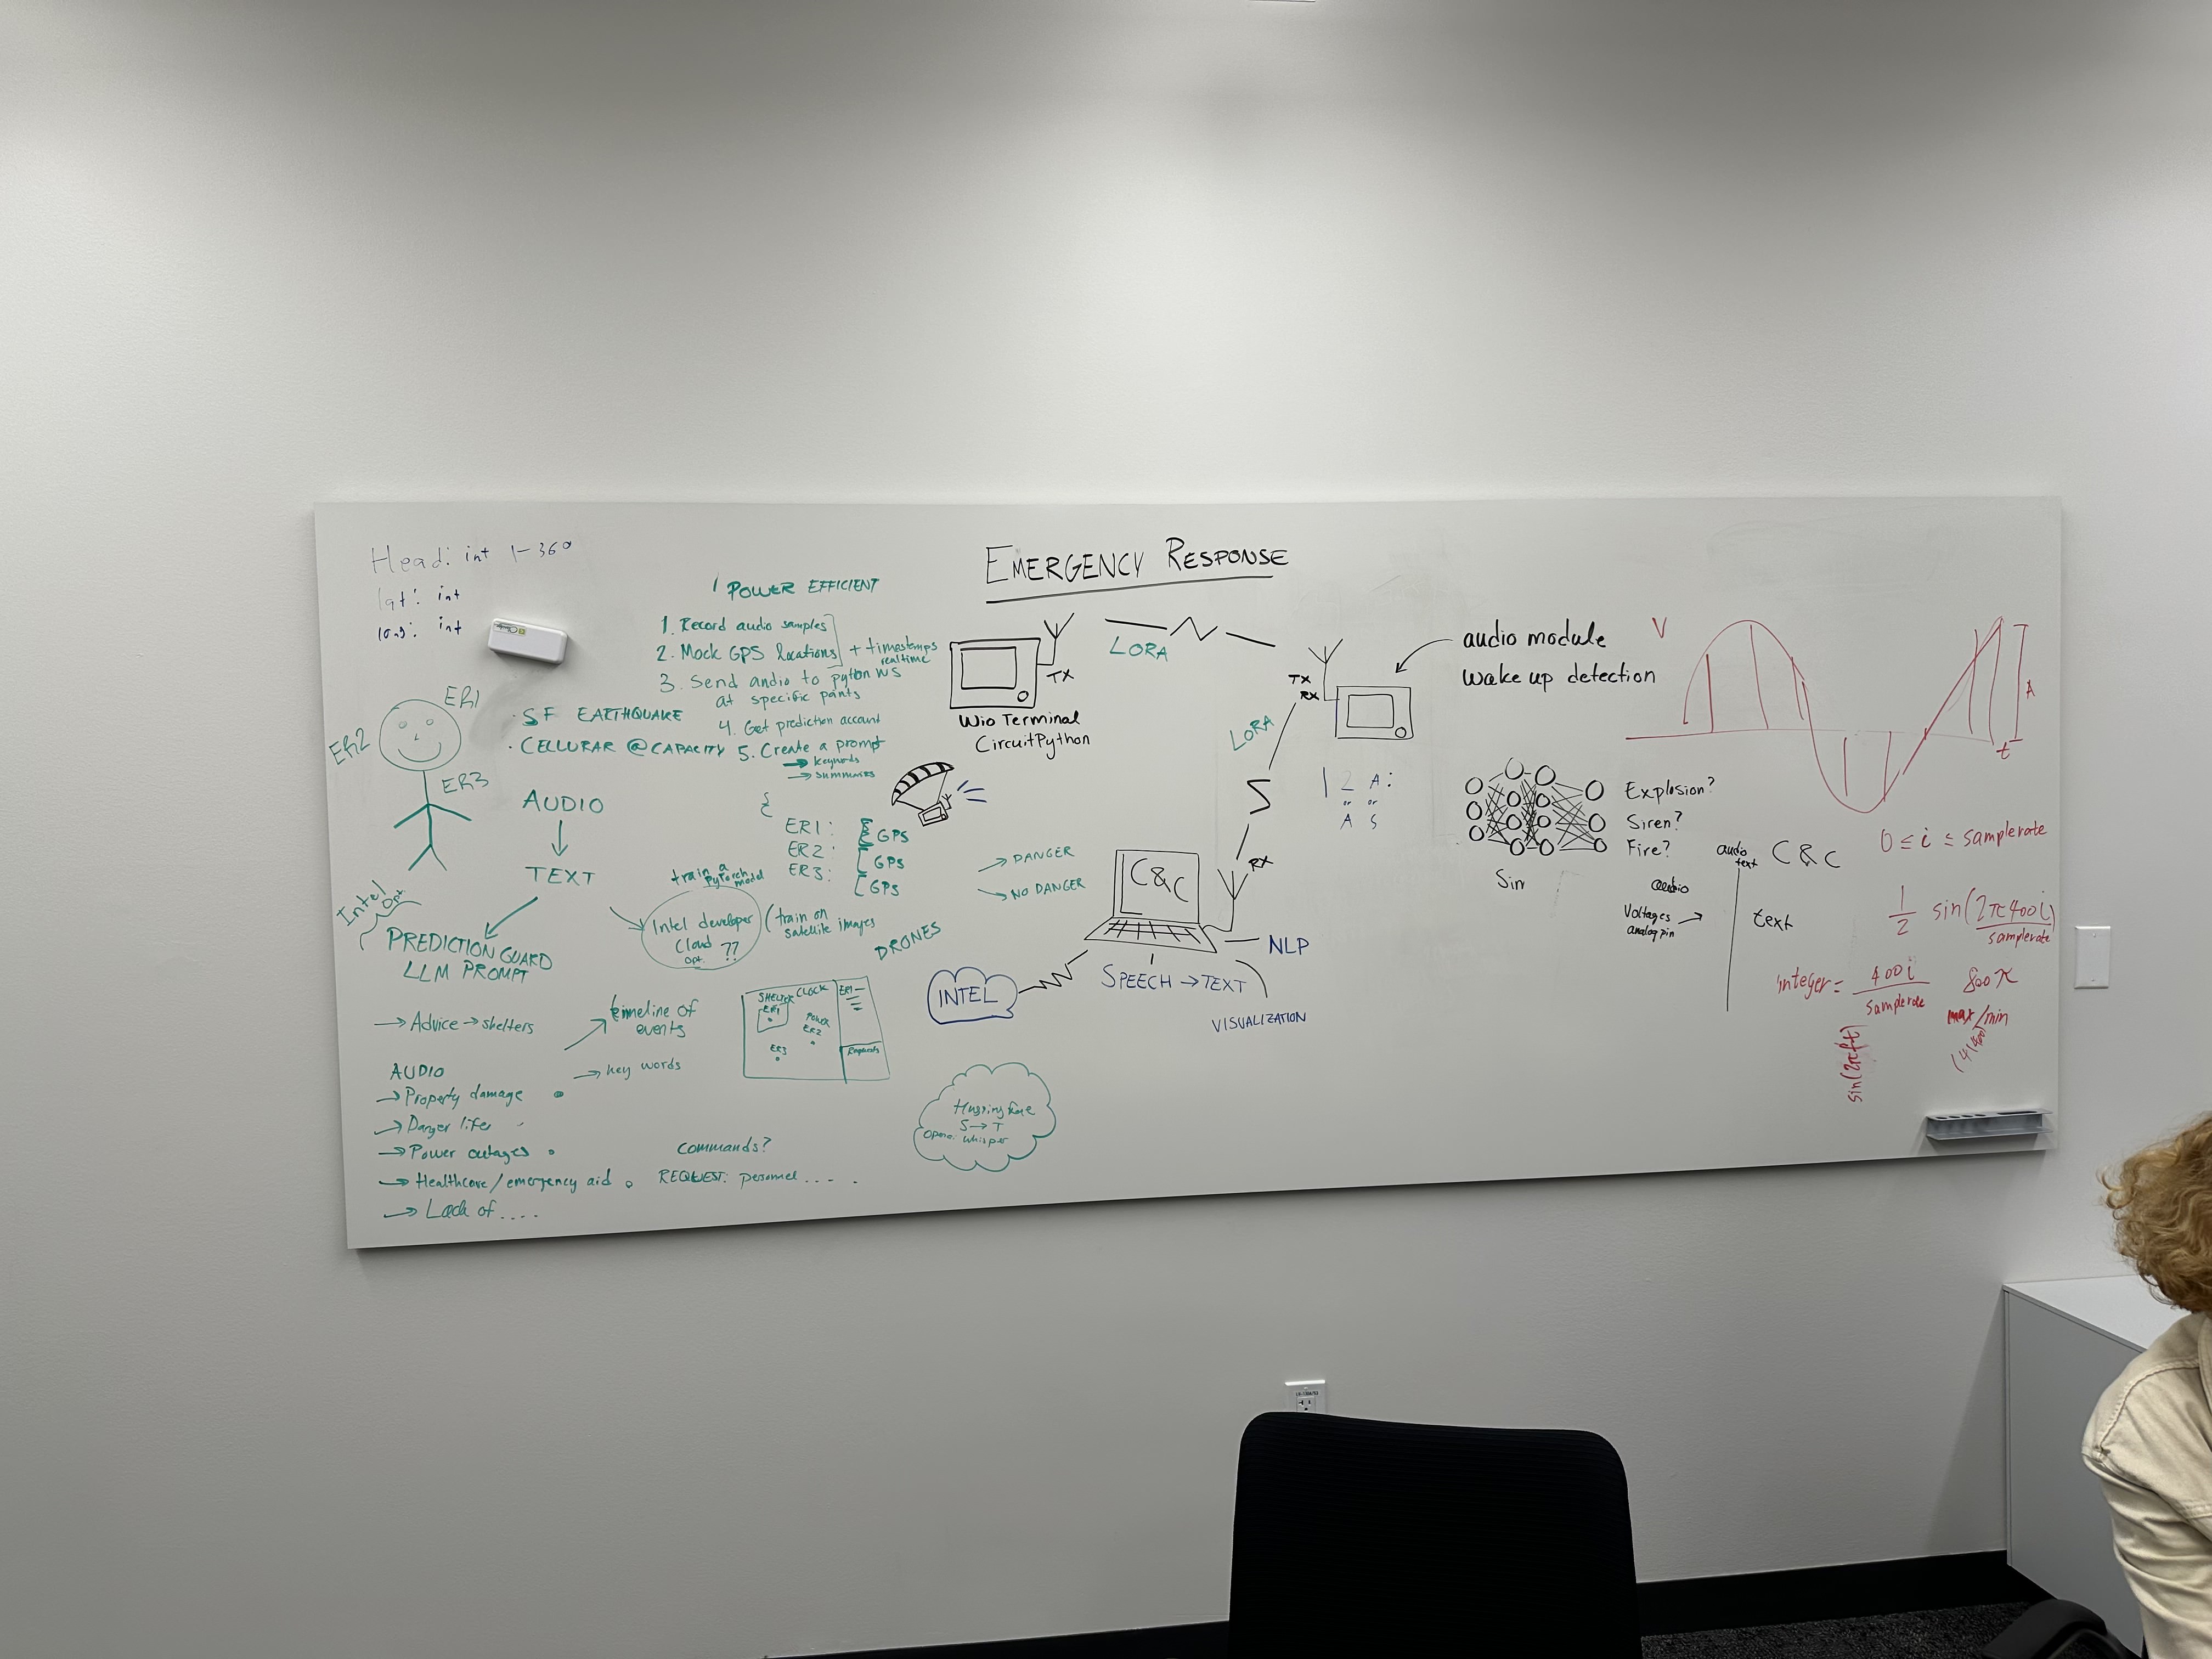 EMERGENCY RESPONSE
Head: int 1-360
lat: int
long: int
ER1
ER2
ER3
POWER EFFICIENT
1. Record audio samples
2. Mock GPS locations + timestemps
realtime
3. Send audio to python WS
at specific points
4. Get prediction account
5. Create a prompt
→ keywords
→ summaries
· SF EARTHQUAKE
· CELLURAR @ CAPACITY
AUDIO
TEXT
Intel
opt
PREDICTION GUARD
LLM PROMPT
→ Advice → shelters
timeline of
events
→ key words
AUDIO
→ Property damage
→ Danger life
→ Power outages
→ Healthcare/emergency aid
→ Lack of....
commands?
REQUEST: personnel....
{
ER1: [GPS
ER2: [GPS
ER3: [GPS
→ DANGER
→ NO DANGER
train a
PyTorch
model
Intel developer
Cloud
opt. ??
(train on
satellite images
DRONES
SHELTER CLOCK ER1—
ER1
POWER
ER2
ER3
Requests
Hugging face
S→T
Open: whisper
TX
Wio Terminal
CircuitPython
LORA
TX
RX
LORA
audio module
wake up detection
1 2 A:
or or
A S
C&C
RX
NLP
INTEL
SPEECH → TEXT
VISUALIZATION
Explosion?
Siren?
Fire?
Sin
audio
text
C&C
audio
Voltages →
analog pin
text
V
A
t
0 ≤ i ≤ samplerate
1/2 sin(2π400i/samplerate)
integer = 400i/samplerate
800π
max/min
sin(2πft)